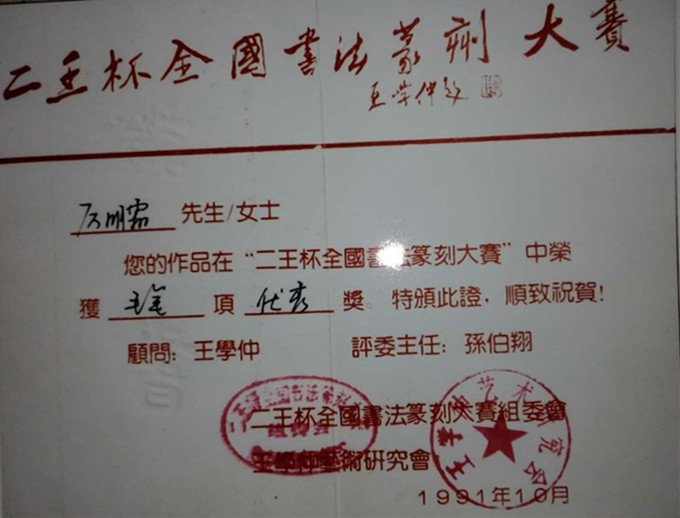 二王杯全國書法篆刻大賽
王學仲題
明霜 先生/女士
您的作品在“二王杯全國書法篆刻大賽”中榮
獲 項 优秀 獎。特頒此證，順致祝賀！
顧問：王學仲 評委主任：孫伯翔
二王杯全國書法篆刻大賽組委會
王學仲藝術研究會
1991年10月